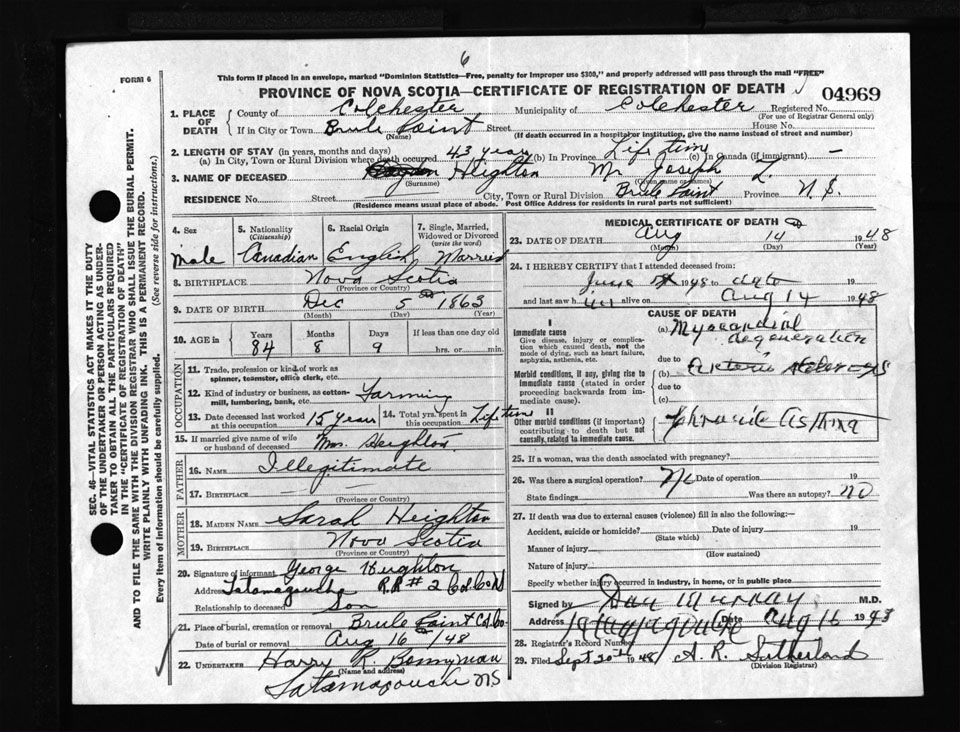 6
FORM 6
This form if placed in an envelope, marked "Dominion Statistics—Free, penalty for improper use $300," and properly addressed will pass through the mail "FREE"
PROVINCE OF NOVA SCOTIA—CERTIFICATE OF REGISTRATION OF DEATH
04969
1. PLACE OF DEATH
County of Colchester Municipality of Colchester Registered No.
(For use of Registrar General only)
If in City or Town Brule Point Street House No.
(Name) (If death occurred in a hospital or institution, give the name instead of street and number)
2. LENGTH OF STAY (in years, months and days)
(a) In City, Town or Rural Division where death occurred 43 years (b) In Province Life time (c) In Canada (if immigrant) —
3. NAME OF DECEASED Heighton Mr Joseph L.
(Surname)
RESIDENCE No. Street City, Town or Rural Division Brule Point Province N.S.
(Residence means usual place of abode. Post Office Address for residents in rural parts not sufficient)
4. Sex
male
5. Nationality
(Citizenship)
Canadian
6. Racial Origin
English
7. Single, Married, Widowed or Divorced
(write the word)
Married
8. BIRTHPLACE Nova Scotia
(Province or Country)
9. DATE OF BIRTH Dec 5 1863
(Month) (Day) (Year)
10. AGE in
Years Months Days If less than one day old
84 8 9 hrs. or min.
OCCUPATION
11. Trade, profession or kind of work as spinner, teamster, office clerk, etc.
12. Kind of industry or business, as cotton-mill, lumbering, bank, etc. Farming
13. Date deceased last worked at this occupation 15 years
14. Total yrs. spent in this occupation Life time
15. If married give name of wife or husband of deceased Mrs. Heighton
FATHER
16. NAME Illegitimate
17. BIRTHPLACE
(Province or Country)
MOTHER
18. MAIDEN NAME Sarah Heighton
19. BIRTHPLACE Nova Scotia
(Province or Country)
20. Signature of informant George Heighton
Address Tatamagouche R.R # 2 Col Co N
Relationship to deceased Son
21. Place of burial, cremation or removal Brule Point Col Co.
Date of burial or removal Aug 16 /48
22. UNDERTAKER Harry R. Bonnyman
(Name and address)
Tatamagouche NS
MEDICAL CERTIFICATE OF DEATH
23. DATE OF DEATH Aug 14 1948
(Month) (Day) (Year)
24. I HEREBY CERTIFY that I attended deceased from
June 1948 to date
and last saw him alive on Aug 14 1948
CAUSE OF DEATH
I
Immediate cause
Give disease, injury or complication which caused death, not the mode of dying, such as heart failure, asphyxia, asthenia, etc.
(a) Myocardial degeneration
due to
Morbid conditions, if any, giving rise to immediate cause (stated in order proceeding backwards from immediate cause).
(b) Arterio sclerosis
due to
(c)
II
Other morbid conditions (if important) contributing to death but not causally related to immediate cause.
Chronic Asthma
25. If a woman, was the death associated with pregnancy?
26. Was there a surgical operation? No Date of operation 19
State findings Was there an autopsy? no
27. If death was due to external causes (violence) fill in also the following:—
Accident, suicide or homicide? Date of injury 19
(State which)
Manner of injury
(How sustained)
Nature of injury
Specify whether injury occurred in industry, in home, or in public place
Signed by Dan Murray M.D.
Address Tatamagouche Date Aug 16 19
28. Registrar's Record Number
29. Filed Sept 20th 1948 A. R. Sutherland
(Division Registrar)
SEC. 46—VITAL STATISTICS ACT MAKES IT THE DUTY
OF THE UNDERTAKER OR PERSON ACTING AS UNDER-
TAKER TO OBTAIN ALL THE PARTICULARS REQUIRED
IN THE "CERTIFICATE OF REGISTRATION OF DEATH"
AND TO FILE THE SAME WITH THE DIVISION REGISTRAR WHO SHALL ISSUE THE BURIAL PERMIT.
WRITE PLAINLY WITH UNFADING INK. THIS IS A PERMANENT RECORD.
Every item of information should be carefully supplied. (See reverse side for instructions.)